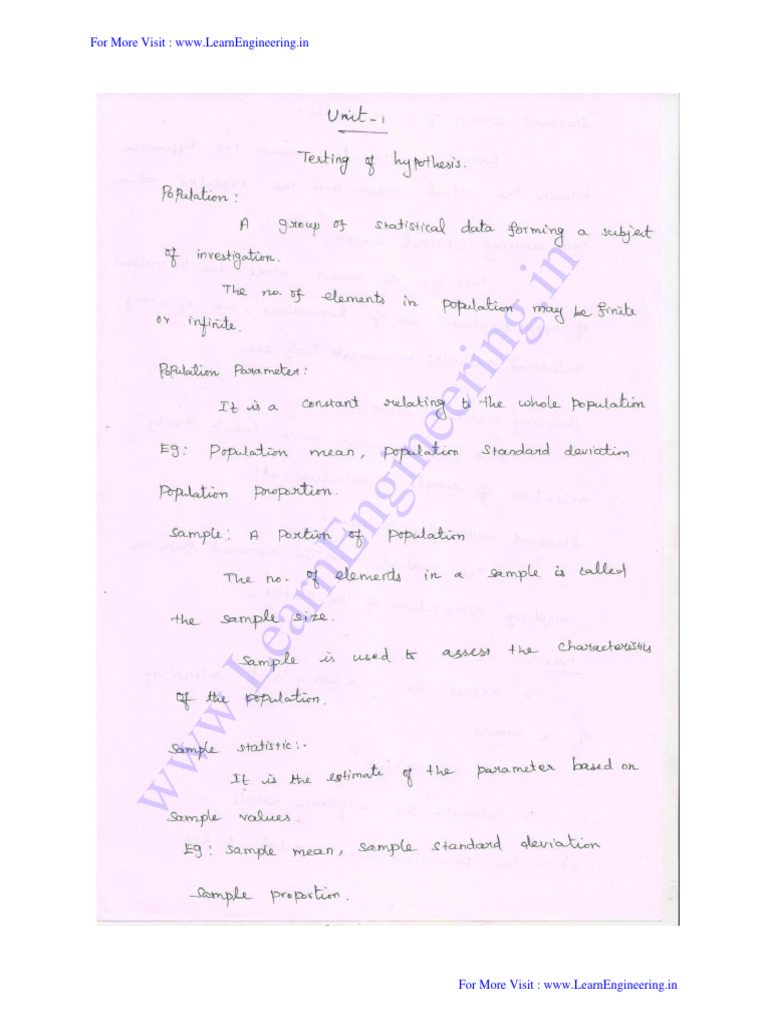 For More Visit : www.LearnEngineering.in
Unit-1
Testing of hypothesis.
Population:
A group of statistical data forming a subject
of investigation.
The no. of elements in population may be finite
or infinite.
Population Parameter:
It is a constant relating to the whole population
Eg: Population mean, population standard deviation
Population proportion.
Sample: A portion of population
The no. of elements in a sample is called
the sample size.
Sample is used to assess the characteristics
of the population.
Sample statistic:-
It is the estimate of the parameter based on
sample values.
Eg: Sample mean, sample standard deviation
Sample proportion.
www.LearnEngineering.in
For More Visit : www.LearnEngineering.in